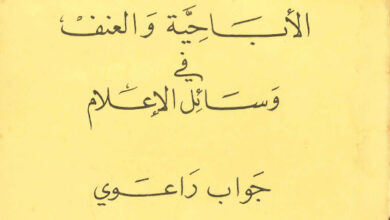 الأبَاحيَّة وَالعنف
في
وَسَائل الإعلام
جَواب رَاعَوي